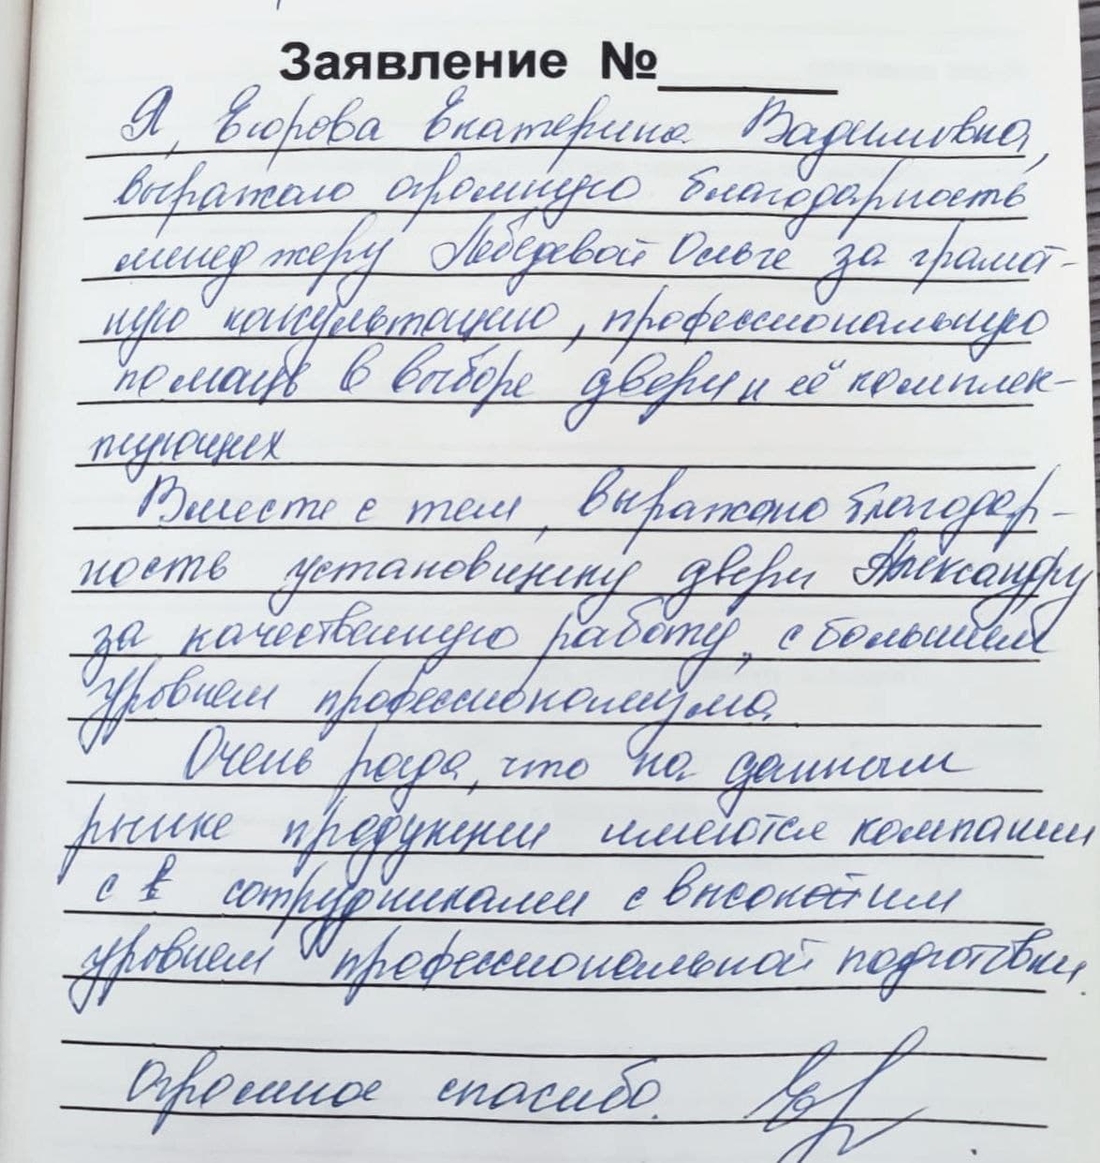 Заявление №______
Я, Егорова Екатерина Вадимовна,
выражаю огромную благодарность
менеджеру Лебедевой Ольге за грамот-
ную консультацию, профессиональную
помощь в выборе двери и её комплек-
тующих
Вместе с тем, выражаю благодар-
ность установщику двери Александру
за качественную работу, с большим
уровнем профессионализма.
Очень рада, что на данном
рынке продукции имеются компании
с сотрудниками с высоким
уровнем профессиональной подготовки.
Огромное спасибо.